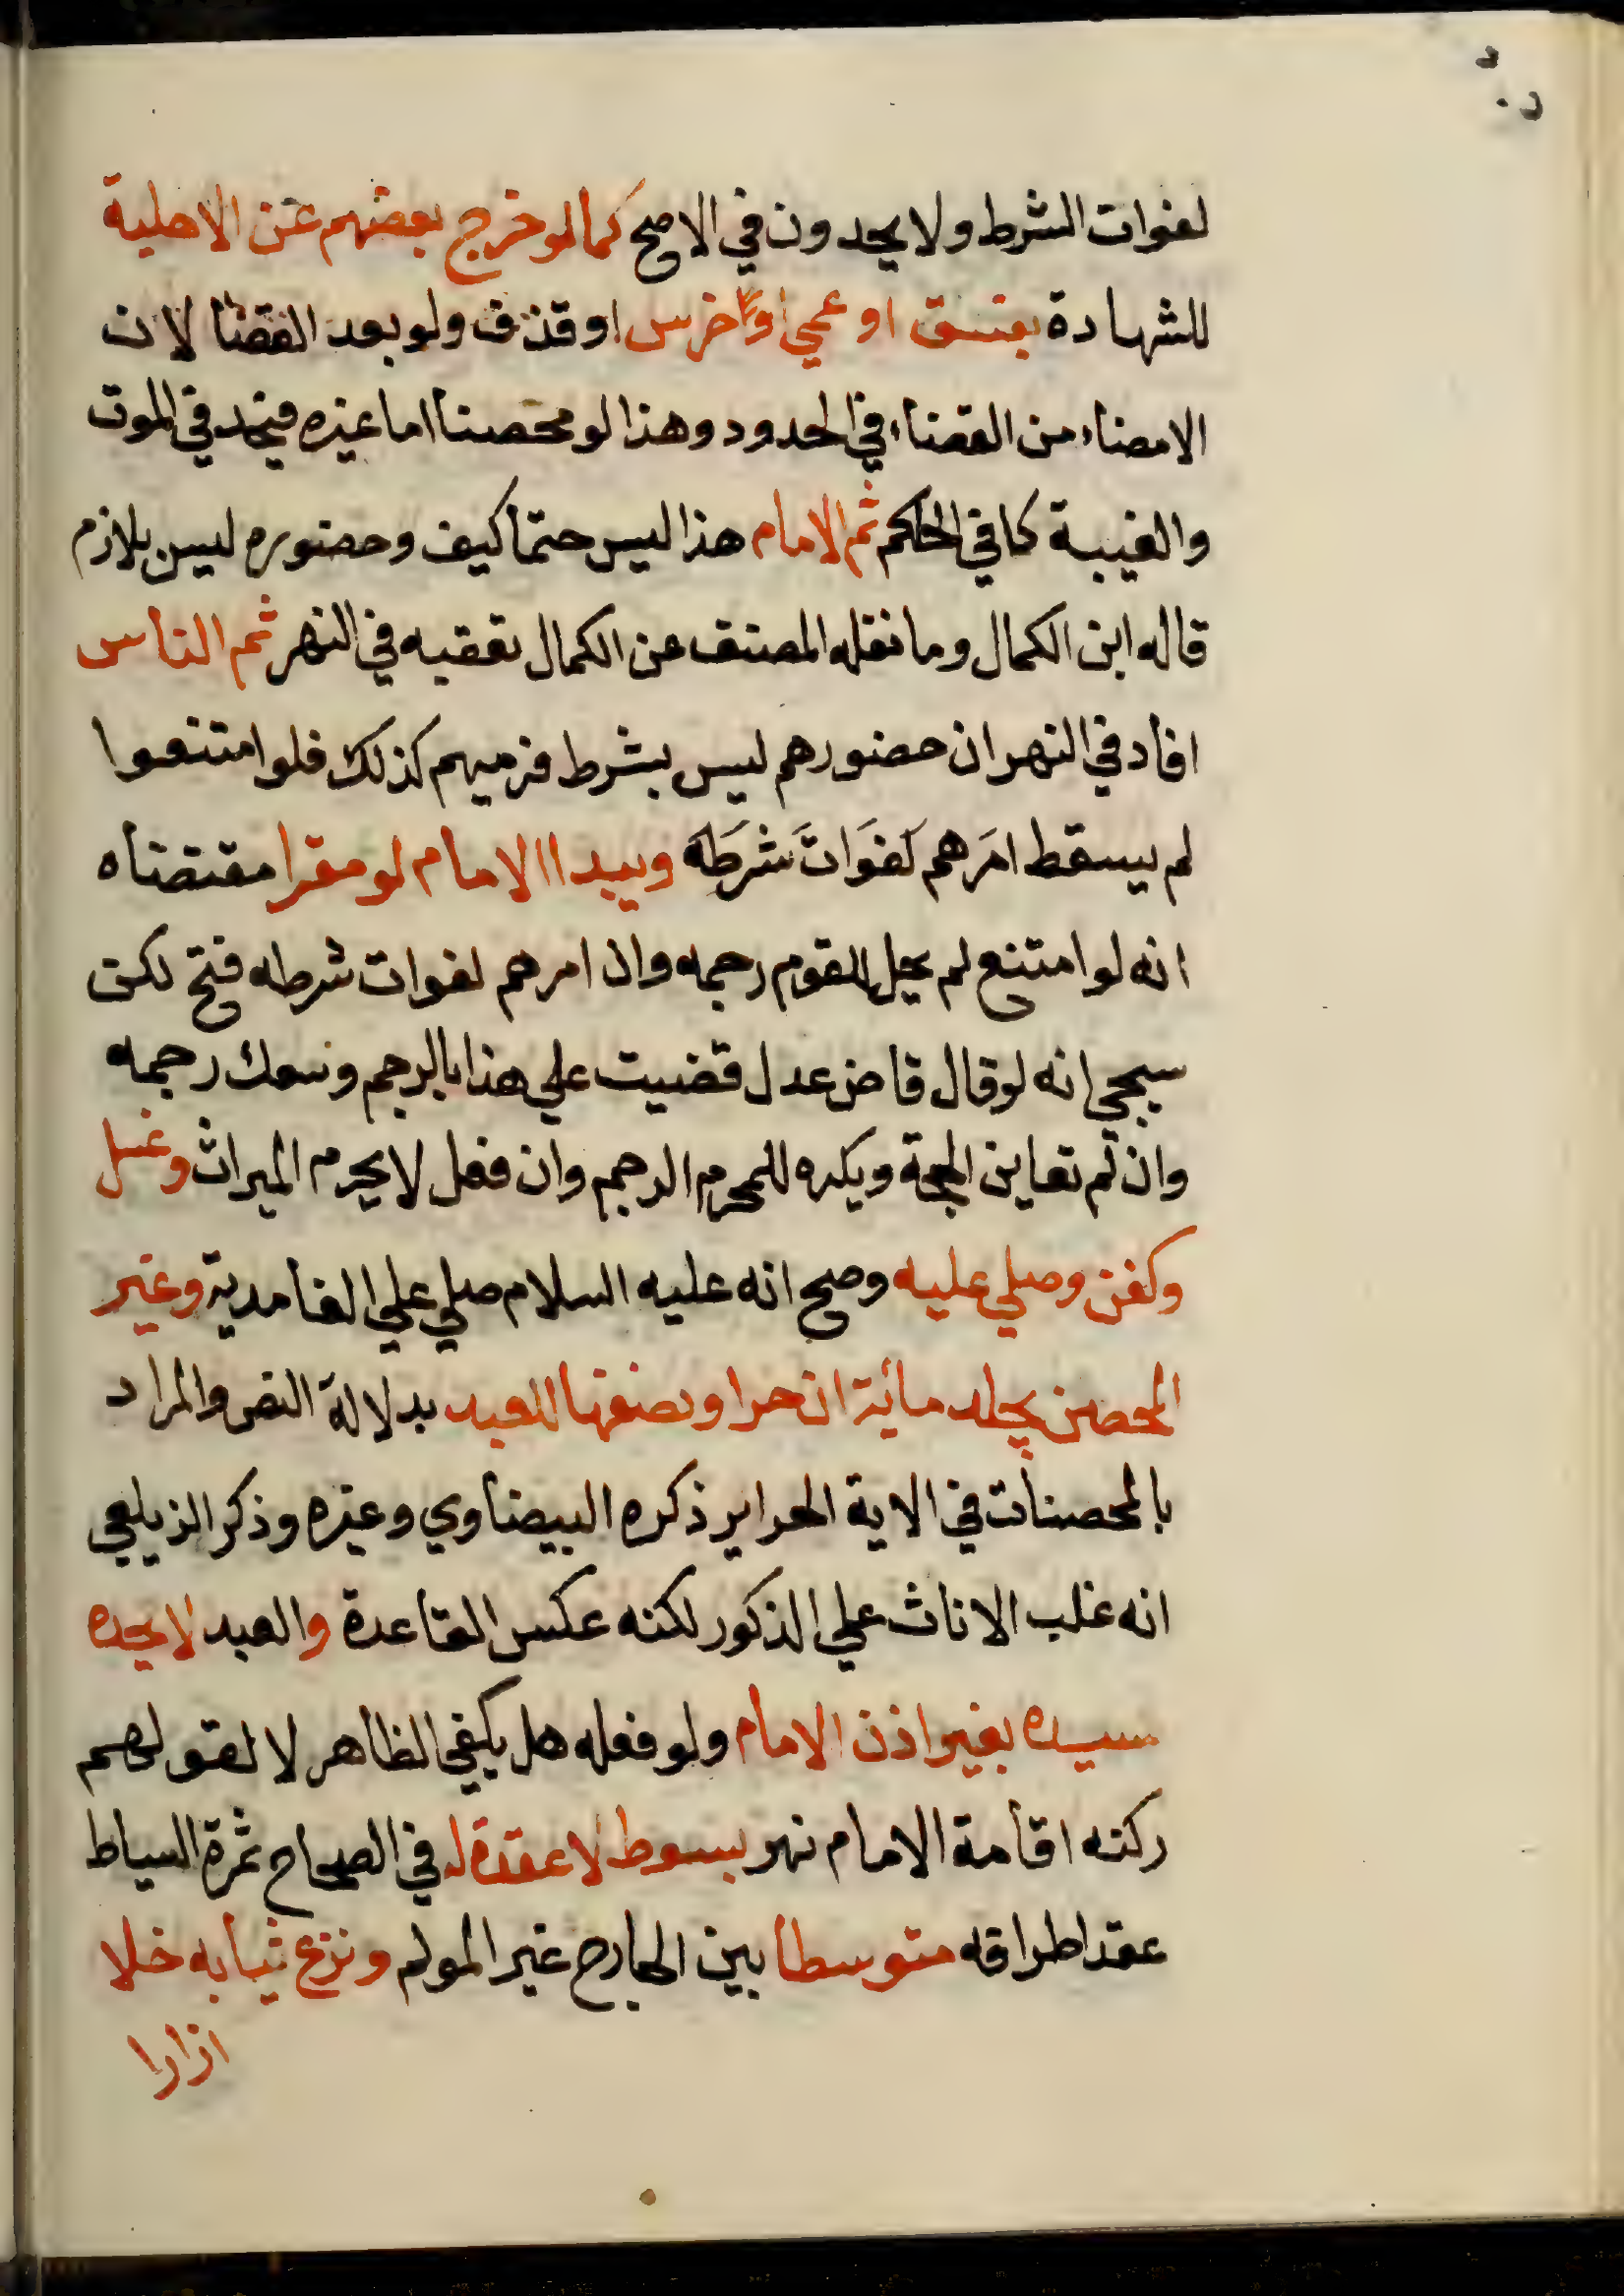 لفوات الشرط ولا يحدون في الاصح كما لو خرج بعضهم عن الاهلية
للشهادة بفسق او عمي او خرس او قذف ولو بعد القضا لان
الامضاء من القضاء في الحدود وهذا لو محصنا اما غيره فيحد في الموت
والغيبة كما في الحاكم ثم الامام هذا ليس حتما كيف وحضوره ليس بلازم
قاله ابن الكمال وما نقله المصنف عن الكمال تعقبه في النهر ثم الناس
افاد في النهر ان حضورهم ليس بشرط فرميهم كذلك فلو امتنعوا
لم يسقط امَرهم لَفوَاتَ شرطَه ويبدا الامام لو مقرا مقتضاه
انه لو امتنع لم يحل للقوم رجمه وان امرهم لفوات شرطه فتح لكن
سيجي انه لو قال قاض عدل قضيت علي هذا بالرجم وسعك رجمه
وان لم تعاين الحجة ويكره للمحرم الرجم وان فعل لا يحرم الميراث وغسل
وكفن وصلي عليه وصح انه عليه السلام صلي علي الغامدية وغير
المحصن يجلد مائة ان حرا ونصفها للعبد بدلالة النص والمراد
بالمحصنات في الاية الحراير ذكره البيضاوي وغيره وذكر الزيلعي
انه غلب الاناث علي الذكور لكنه عكس القاعدة والعبد لا يحده
سيده بغير اذن الامام ولو فعله هل يكفي الظاهر لا لقولهم
ركنه اقامة الامام نهر بسوط لا عقدة له في الصحاح ثمرة السياط
عقد اطرافه متوسطا بين الجارح غير المولم ونزع ثيابه خلا
ازارا